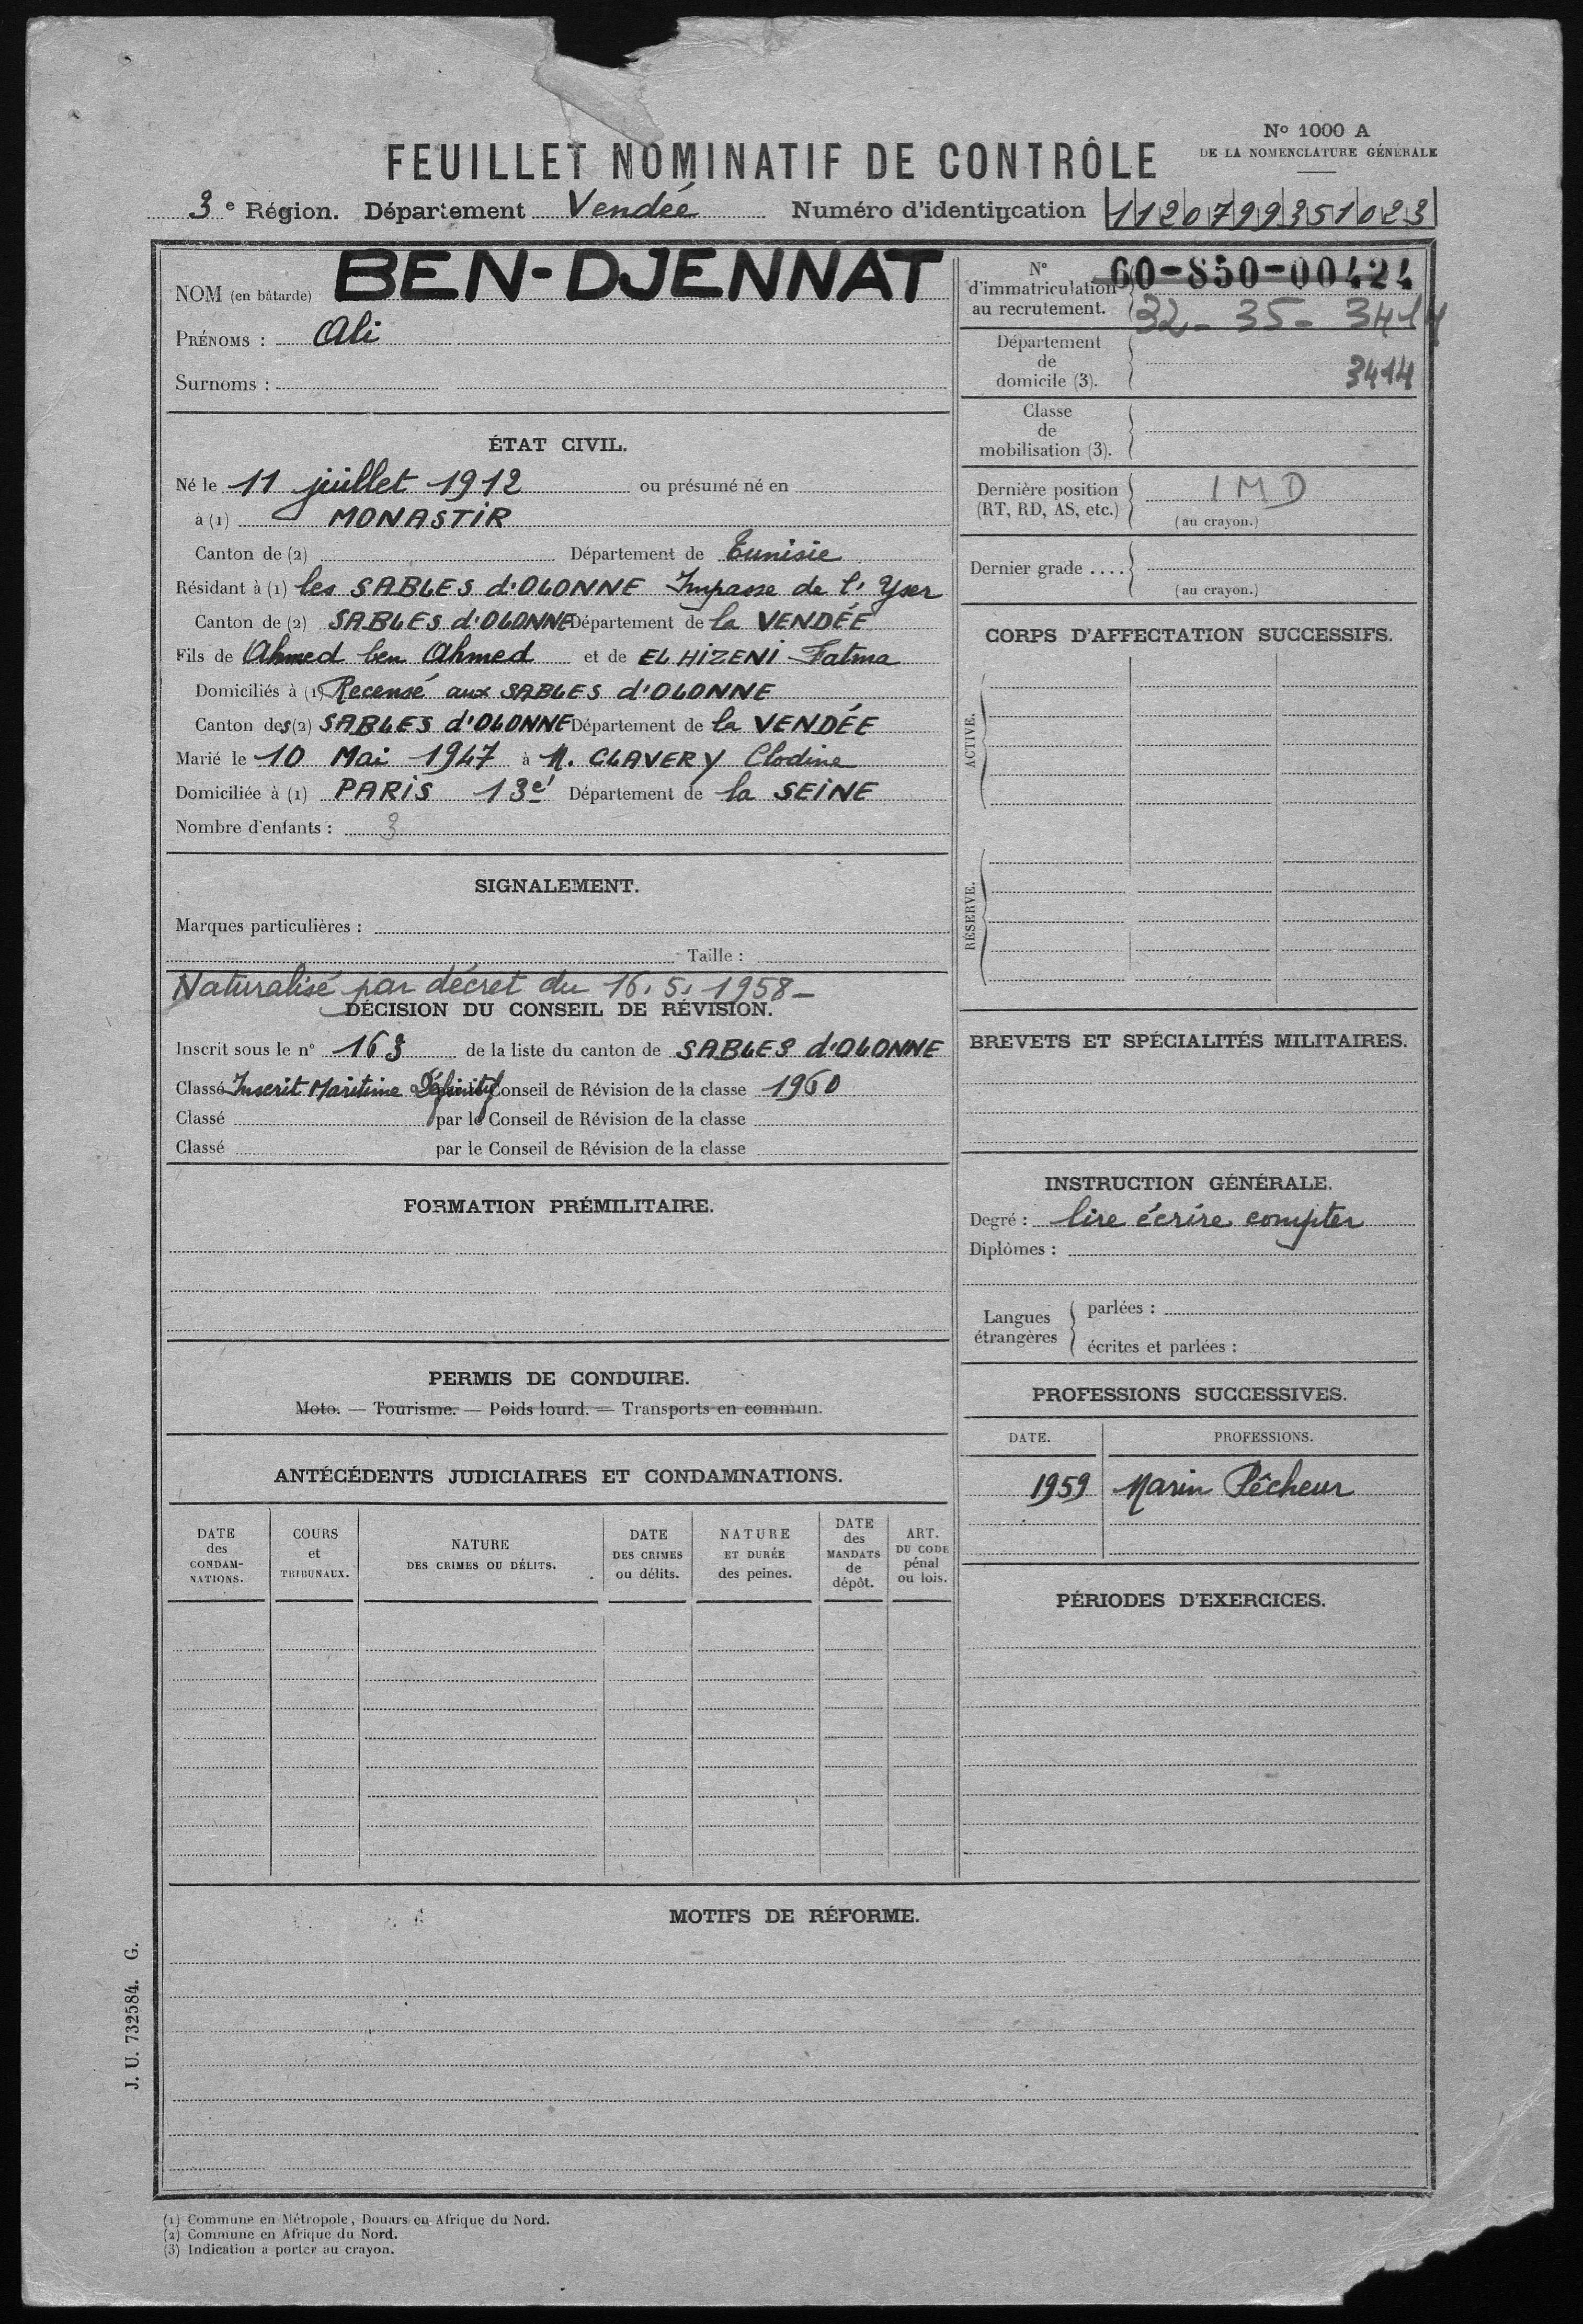 N° 1000 A
DE LA NOMENCLATURE GÉNÉRALE
FEUILLET NOMINATIF DE CONTRÔLE
3e Région. Département Vendée Numéro d'identification 1120799351023
NOM (en bâtarde) BEN-DJENNAT
PRÉNOMS : Ali
Surnoms :
ÉTAT CIVIL.
Né le 11 juillet 1912 ou présumé né en
à (1) MONASTIR
Canton de (2) Département de Tunisie
Résidant à (1) les SABLES d'OLONNE Impasse de l'Yser
Canton de (2) SABLES d'OLONNE Département de la VENDÉE
Fils de Ahmed ben Ahmed et de EL HIZENI Fatma
Domiciliés à (1) Recensé aux SABLES d'OLONNE
Canton des (2) SABLES d'OLONNE Département de la VENDÉE
Marié le 10 Mai 1947 à M. CLAVERY Clodine
Domiciliée à (1) PARIS 13e Département de la SEINE
Nombre d'enfants : 3
SIGNALEMENT.
Marques particulières :
Taille :
Naturalisé par décret du 16.5.1958-
DÉCISION DU CONSEIL DE RÉVISION.
Inscrit sous le n° 163 de la liste du canton de SABLES d'OLONNE
Classé Inscrit Maritime Définitif Conseil de Révision de la classe 1960
Classé par le Conseil de Révision de la classe
Classé par le Conseil de Révision de la classe
FORMATION PRÉMILITAIRE.
PERMIS DE CONDUIRE.
Moto. — Tourisme. — Poids lourd. — Transports en commun.
ANTÉCÉDENTS JUDICIAIRES ET CONDAMNATIONS.
DATE des CONDAM-NATIONS.
COURS et TRIBUNAUX.
NATURE DES CRIMES OU DÉLITS.
DATE DES CRIMES ou délits.
NATURE ET DURÉE des peines.
DATE des MANDATS de dépôt.
ART. DU CODE pénal ou lois.
N° d'immatriculation au recrutement. 60-850-00424
32-35-3414
Département de domicile (3). 3414
Classe de mobilisation (3).
Dernière position (RT, RD, AS, etc.) IMD
(au crayon.)
Dernier grade ....
(au crayon.)
CORPS D'AFFECTATION SUCCESSIFS.
ACTIVE.
RÉSERVE.
BREVETS ET SPÉCIALITÉS MILITAIRES.
INSTRUCTION GÉNÉRALE.
Degré : lire écrire compter
Diplômes :
Langues étrangères
parlées :
écrites et parlées :
PROFESSIONS SUCCESSIVES.
DATE. PROFESSIONS.
1959 Marin Pêcheur
PÉRIODES D'EXERCICES.
MOTIFS DE RÉFORME.
J. U. 732584. G.
(1) Commune en Métropole, Douars en Afrique du Nord.
(2) Commune en Afrique du Nord.
(3) Indication a porter au crayon.